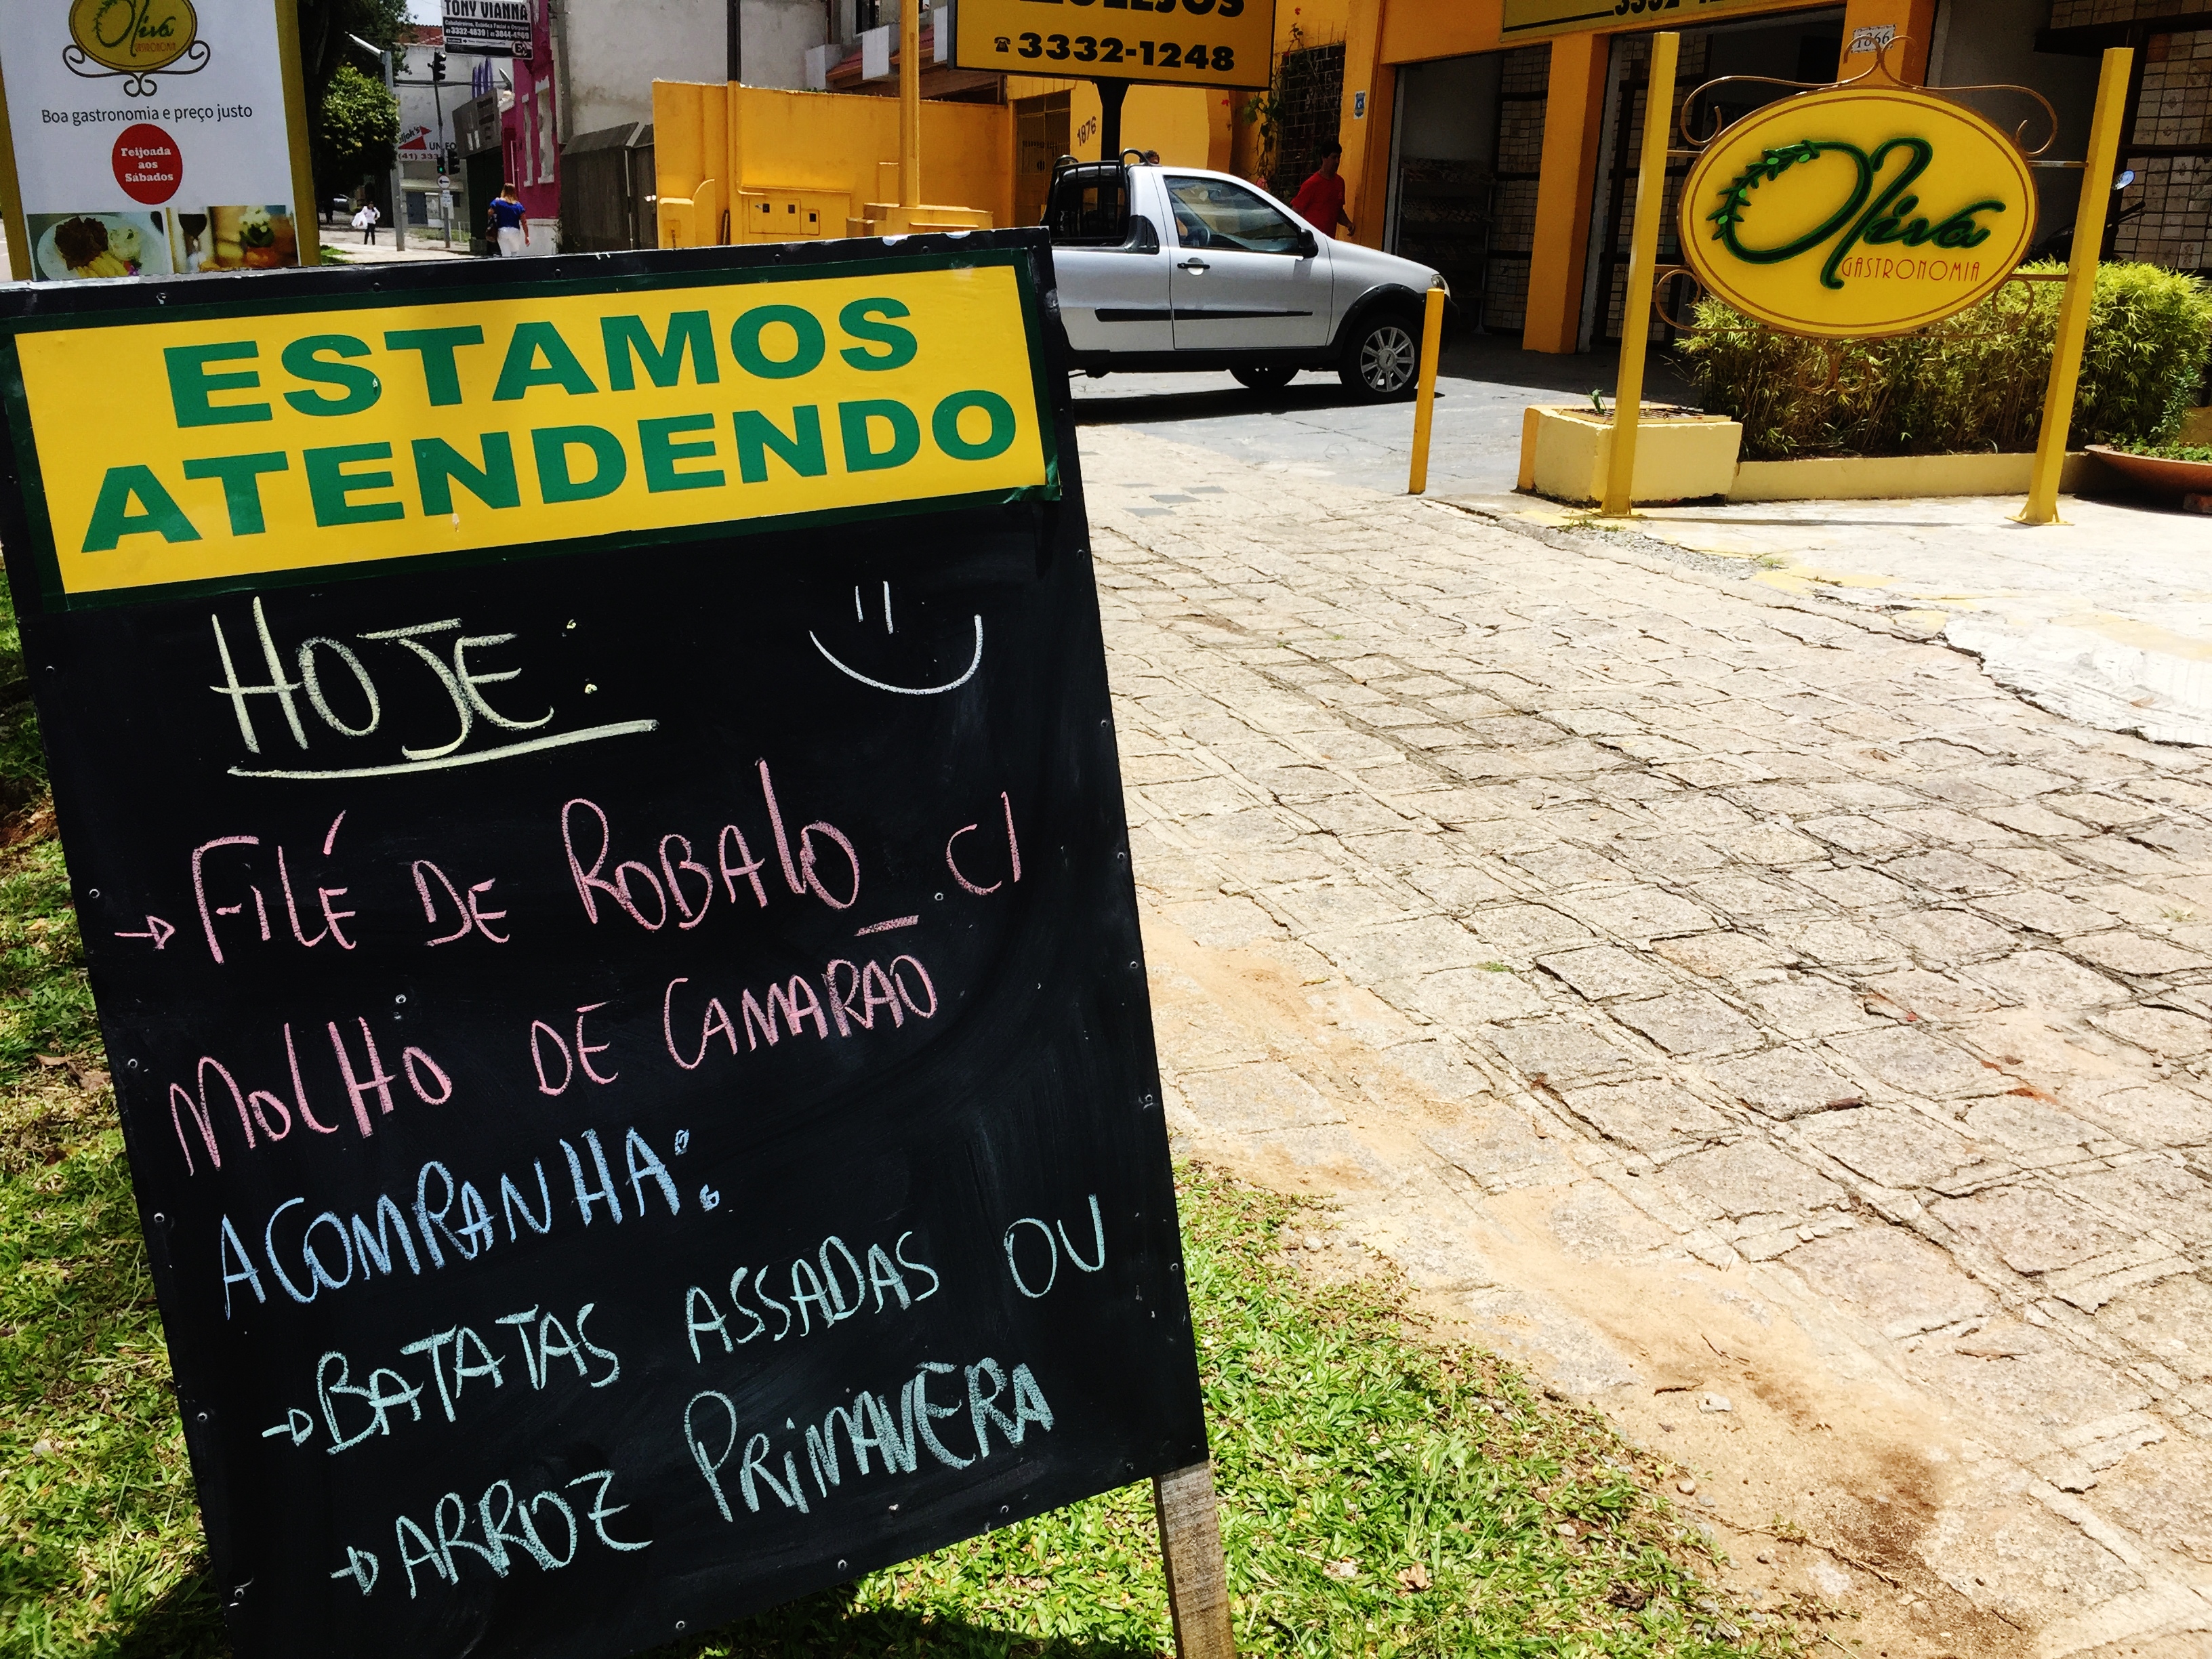 Oliva
GASTRONOMIA
Boa gastronomia e preço justo
Feijoada
aos
Sábados
TONY VIANNA
3332-1248
1876
1866
Oliva
GASTRONOMIA
ESTAMOS
ATENDENDO
HOJE:
→ FILÉ DE ROBALO C/
MOLHO DE CAMARÃO
ACOMPANHA:
→ BATATAS ASSADAS OU
→ ARROZ PRIMAVERA